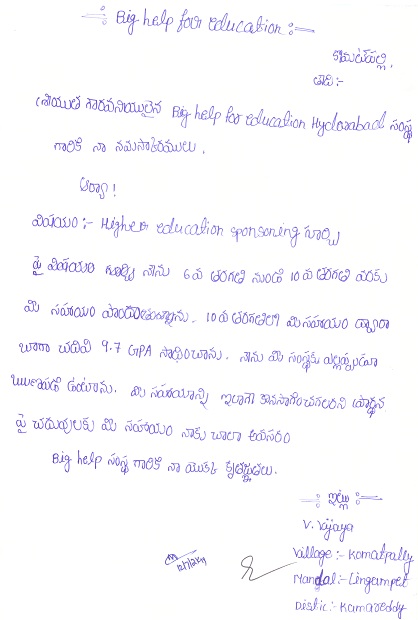 Big help for education :—
కామట్‌పల్లి,
తేది:-
శ్రీయుత గౌరవనీయులైన Big help for education Hyderabad సంస్థ
గారికి నా నమస్కారములు.
ఆర్యా!
విషయం :- Higher education sponsoring గూర్చి
పై విషయం గూర్చి నేను 6వ తరగతి నుండి 10వ తరగతి వరకు
మీ సహాయం పొందుతున్నాను. 10వ తరగతిలో మీ సహాయం ద్వారా
బాగా చదివి 9.7 GPA సాధించాను. నేను మీ సంస్థకు ఎల్లప్పుడూ
ఋణపడి ఉంటాను. మీ సహాయాన్ని ఇలాగే కొనసాగించగలరని ప్రార్థన
పై చదువులకు మీ సహాయం నాకు చాలా అవసరం
Big help సంస్థ గారికి నా యొక్క కృతజ్ఞతలు.
—: ఇట్లు :—
V. Vijaya
Village :- Komatpally
Mandal :- Lingampet
Distic :- Kamareddy